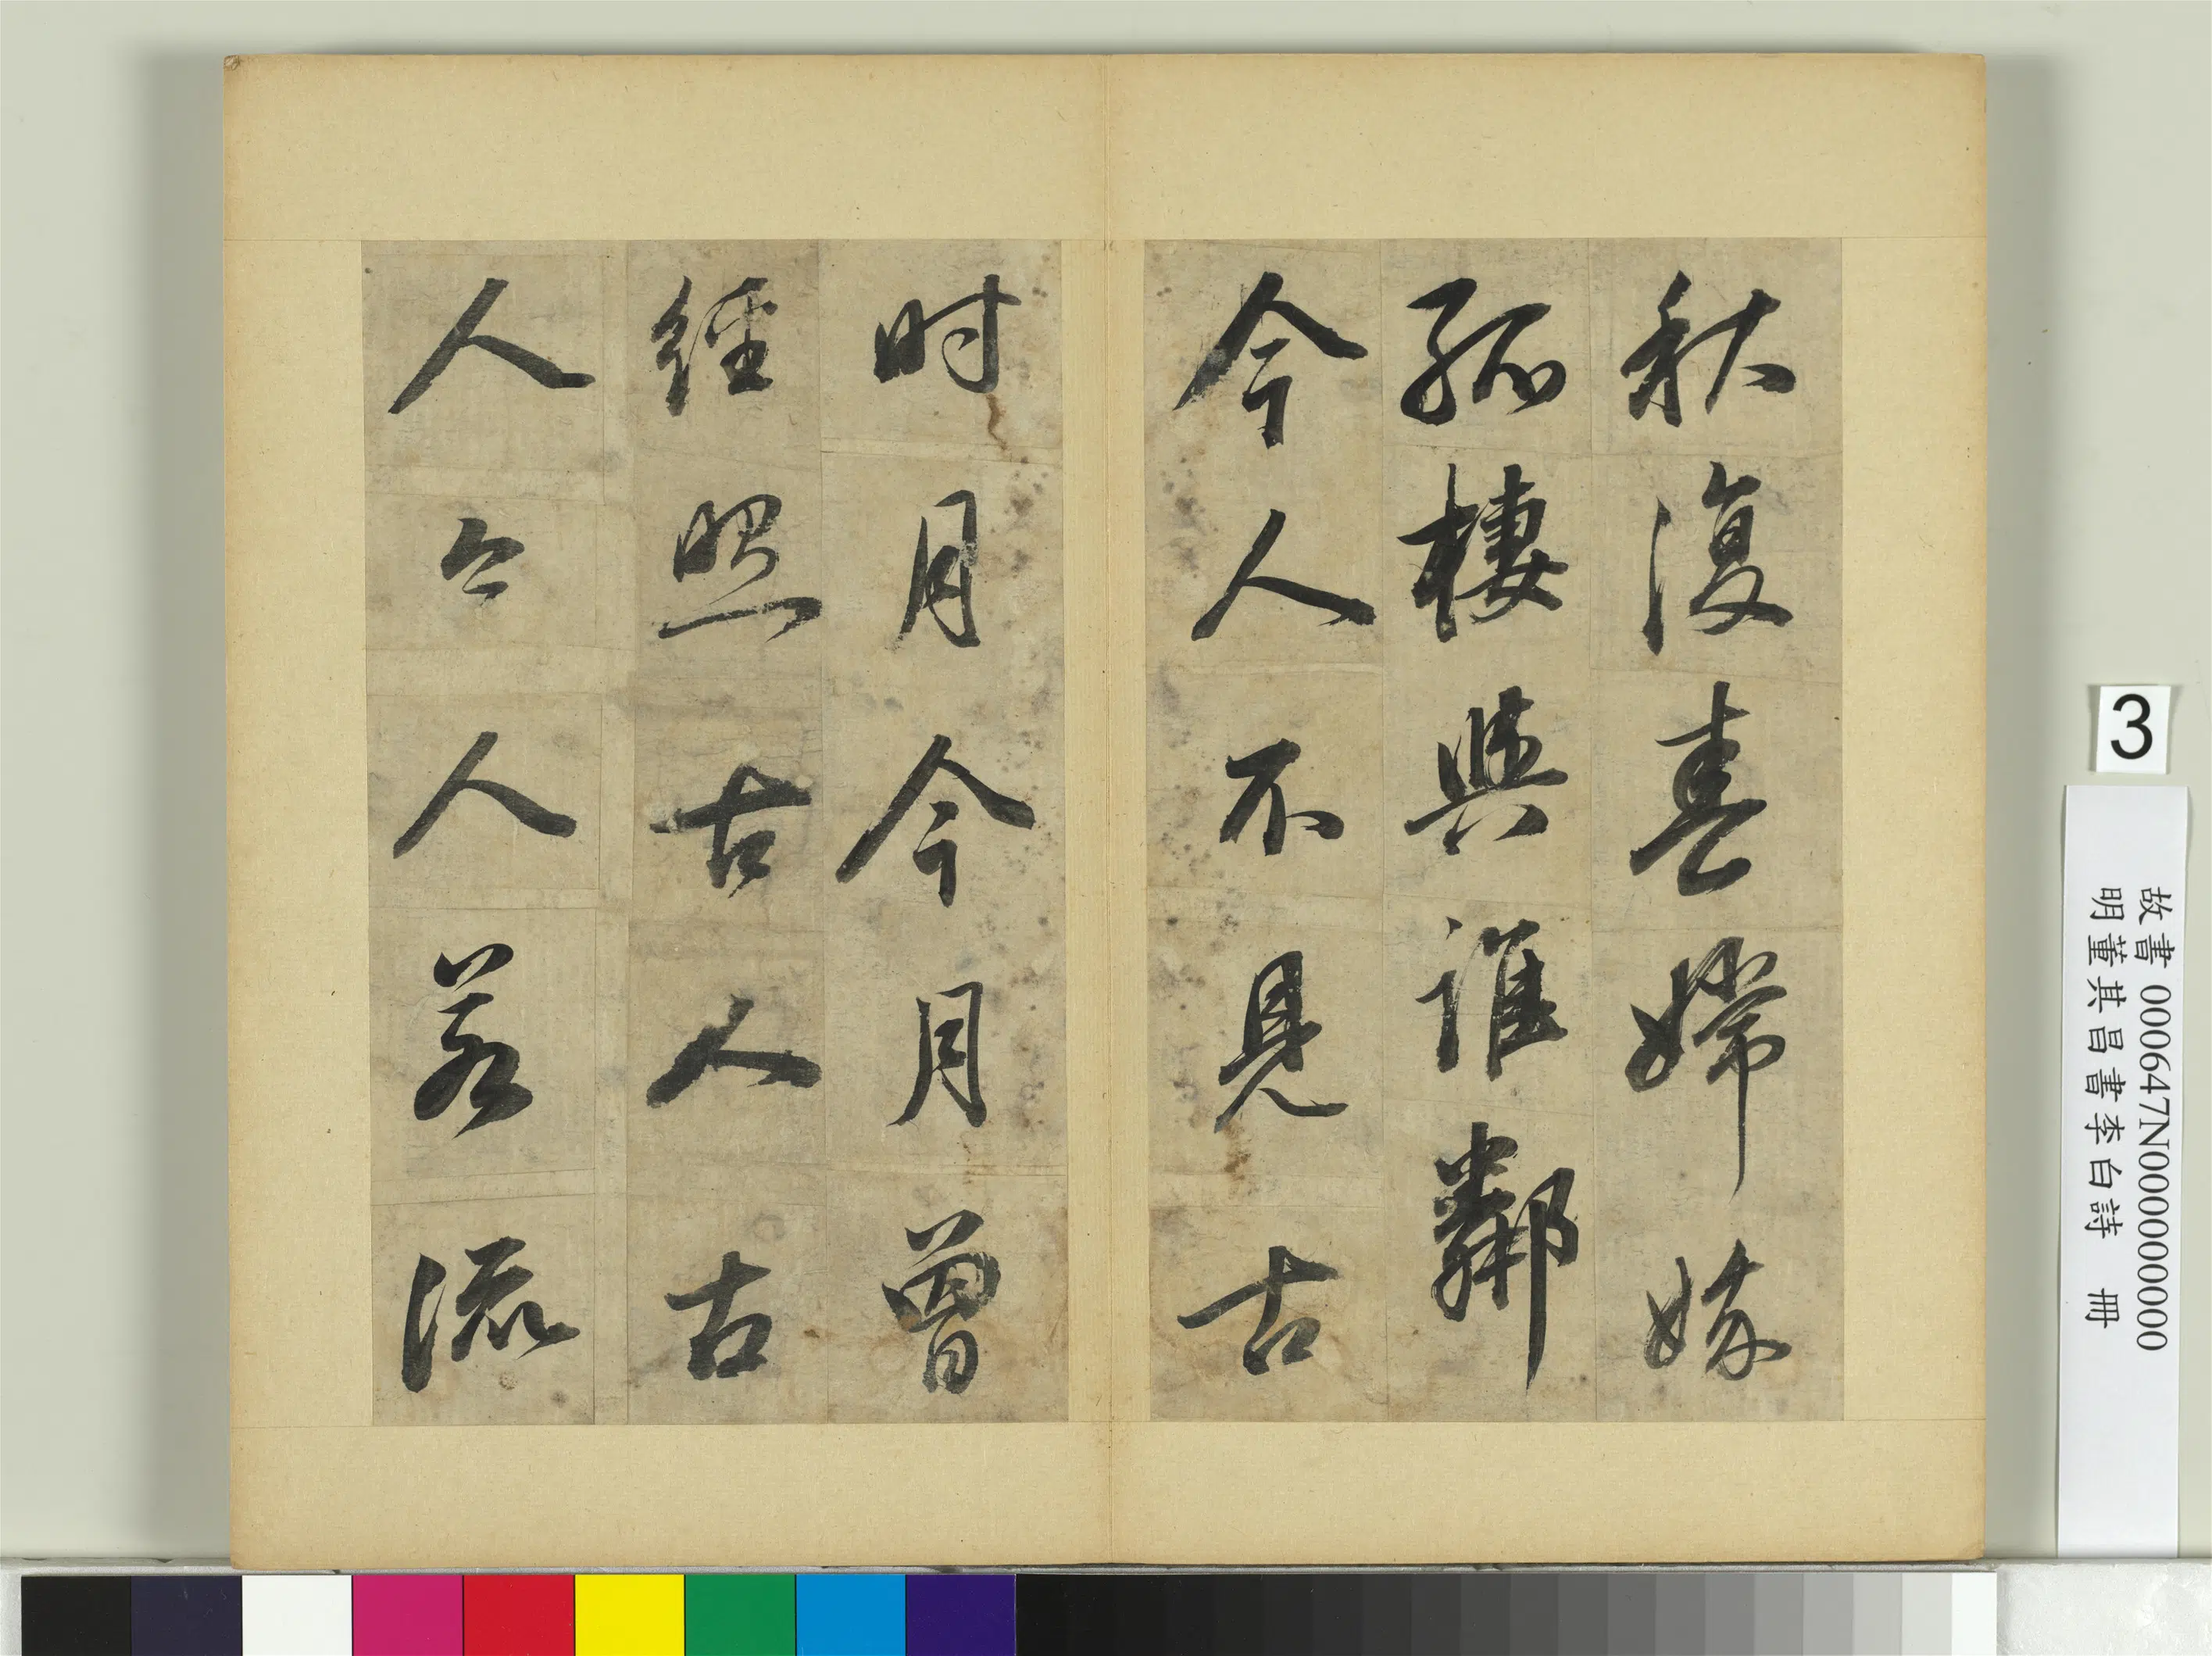 秋復春嫦娥
孤棲與誰鄰
今人不見古
时月今月曾
經照古人古
人今人若流
3
故書 000647N000000000
明董其昌書李白詩　冊